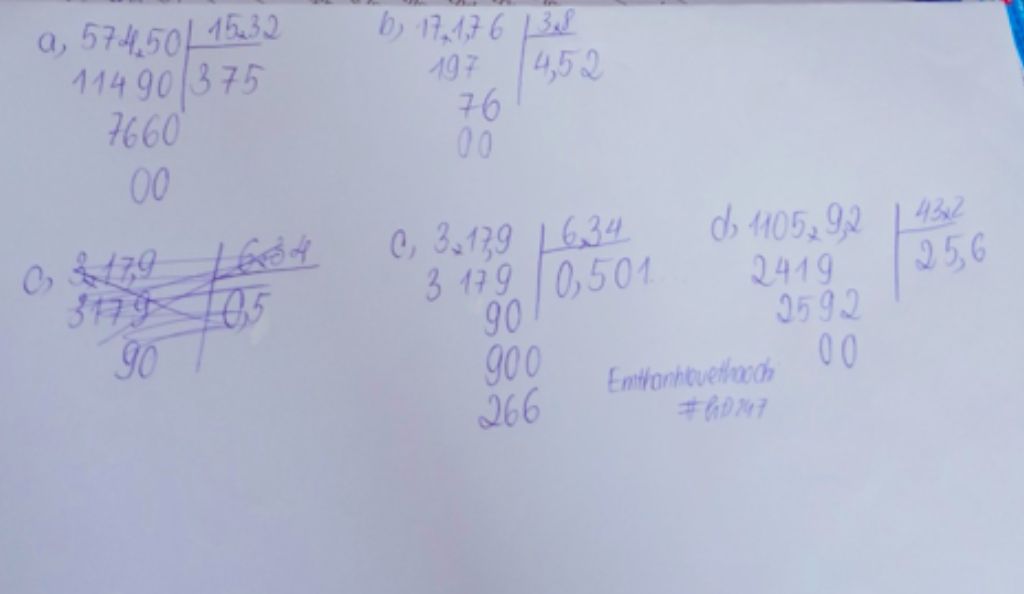 a, 574,50 | 15,32
11490 | 375
7660
00
b, 17,1,76 | 3,8
197 | 4,52
76
00
c, 3,17,9 | 6,34
3179 | 0,5
90
c, 3,17,9 | 6,34
3 179 | 0,501
90
900
266
d, 1105,9,2 | 43,2
2419 | 25,6
2592
00